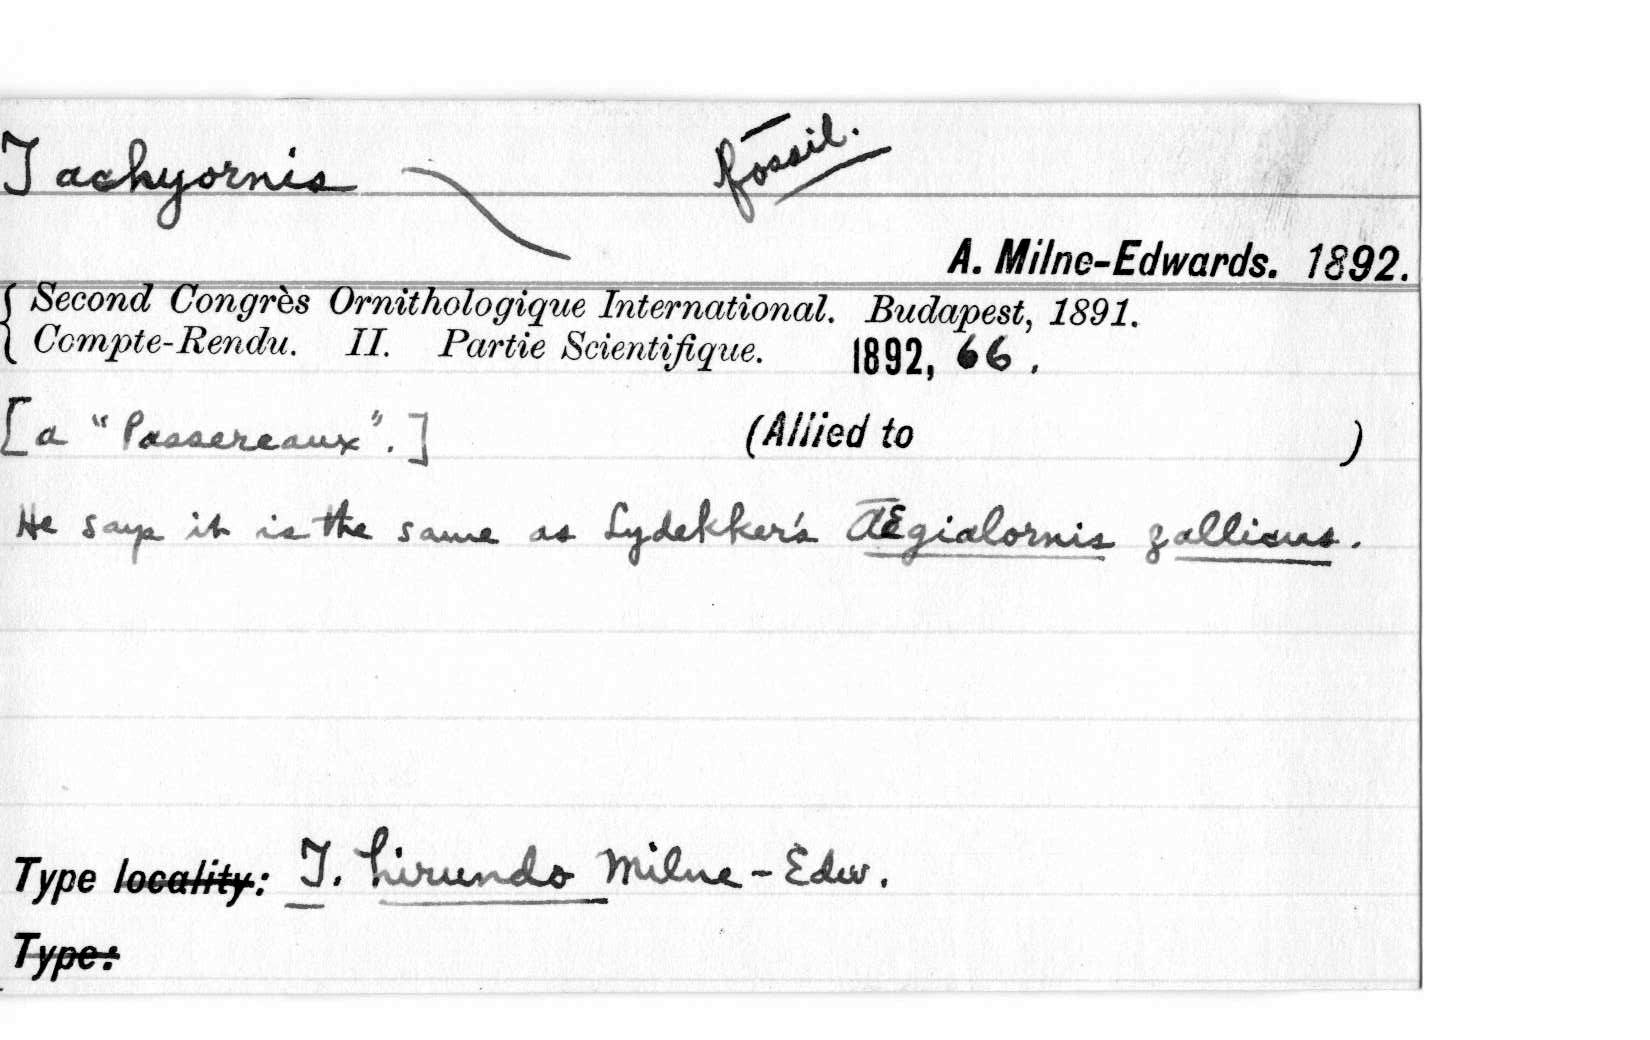 Tachyornis
fossil.
A. Milne-Edwards. 1892.
Second Congrès Ornithologique International. Budapest, 1891.
Compte-Rendu. II. Partie Scientifique. 1892, 66.
[a "Passereaux".] (Allied to )
He says it is the same as Lydekker's Ægialornis gallicus.
Type locality: T. hirundo Milne-Edw.
Type: